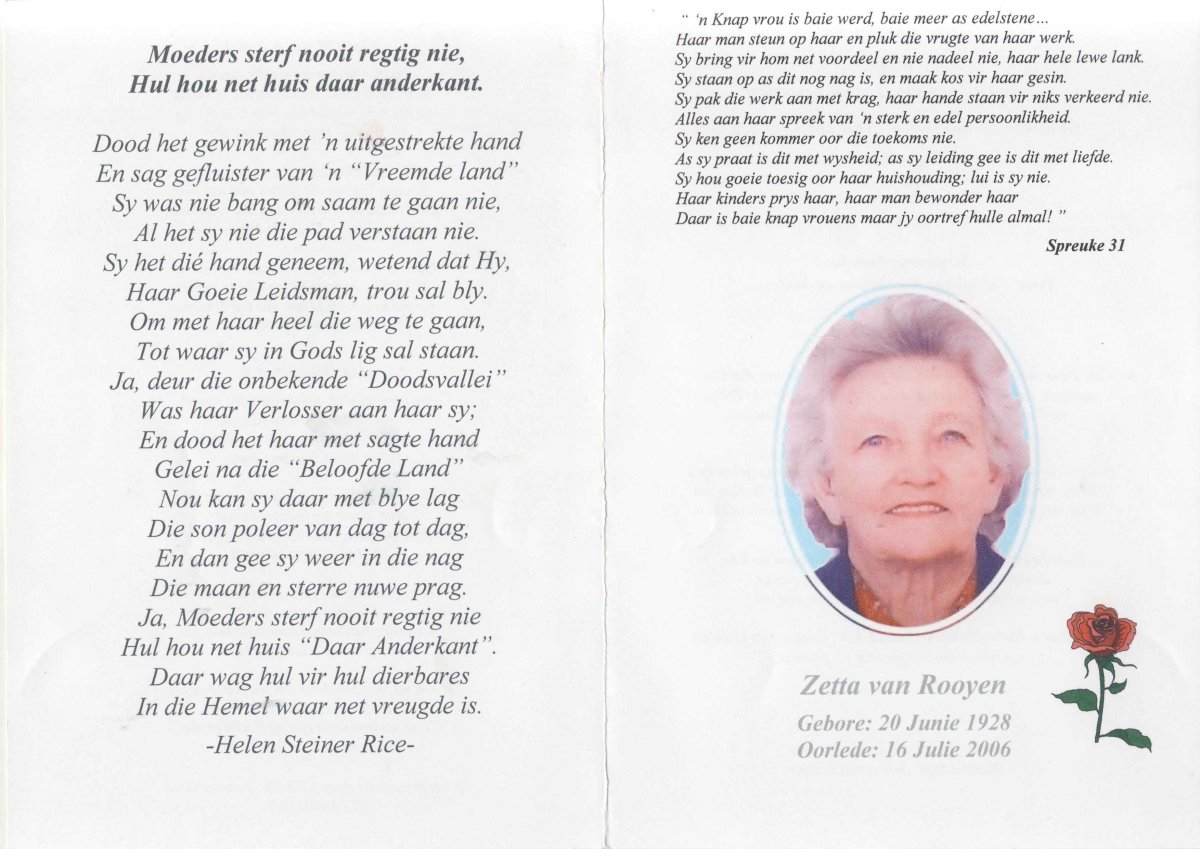 Moeders sterf nooit regtig nie,
Hul hou net huis daar anderkant.
Dood het gewink met ’n uitgestrekte hand
En sag gefluister van ‘n “Vreemde land”
Sy was nie bang om saam te gaan nie,
Al het sy nie die pad verstaan nie.
Sy het dié hand geneem, wetend dat Hy,
Haar Goeie Leidsman, trou sal bly.
Om met haar heel die weg te gaan,
Tot waar sy in Gods lig sal staan.
Ja, deur die onbekende “Doodsvallei”
Was haar Verlosser aan haar sy;
En dood het haar met sagte hand
Gelei na die “Beloofde Land”
Nou kan sy daar met blye lag
Die son poleer van dag tot dag,
En dan gee sy weer in die nag
Die maan en sterre nuwe prag.
Ja, Moeders sterf nooit regtig nie
Hul hou net huis “Daar Anderkant”.
Daar wag hul vir hul dierbares
In die Hemel waar net vreugde is.
-Helen Steiner Rice-
“ ‘n Knap vrou is baie werd, baie meer as edelstene…
Haar man steun op haar en pluk die vrugte van haar werk.
Sy bring vir hom net voordeel en nie nadeel nie, haar hele lewe lank.
Sy staan op as dit nog nag is, en maak kos vir haar gesin.
Sy pak die werk aan met krag, haar hande staan vir niks verkeerd nie.
Alles aan haar spreek van ‘n sterk en edel persoonlikheid.
Sy ken geen kommer oor die toekoms nie.
As sy praat is dit met wysheid; as sy leiding gee is dit met liefde.
Sy hou goeie toesig oor haar huishouding; lui is sy nie.
Haar kinders prys haar, haar man bewonder haar
Daar is baie knap vrouens maar jy oortref hulle almal! ”
Spreuke 31
Zetta van Rooyen
Gebore: 20 Junie 1928
Oorlede: 16 Julie 2006